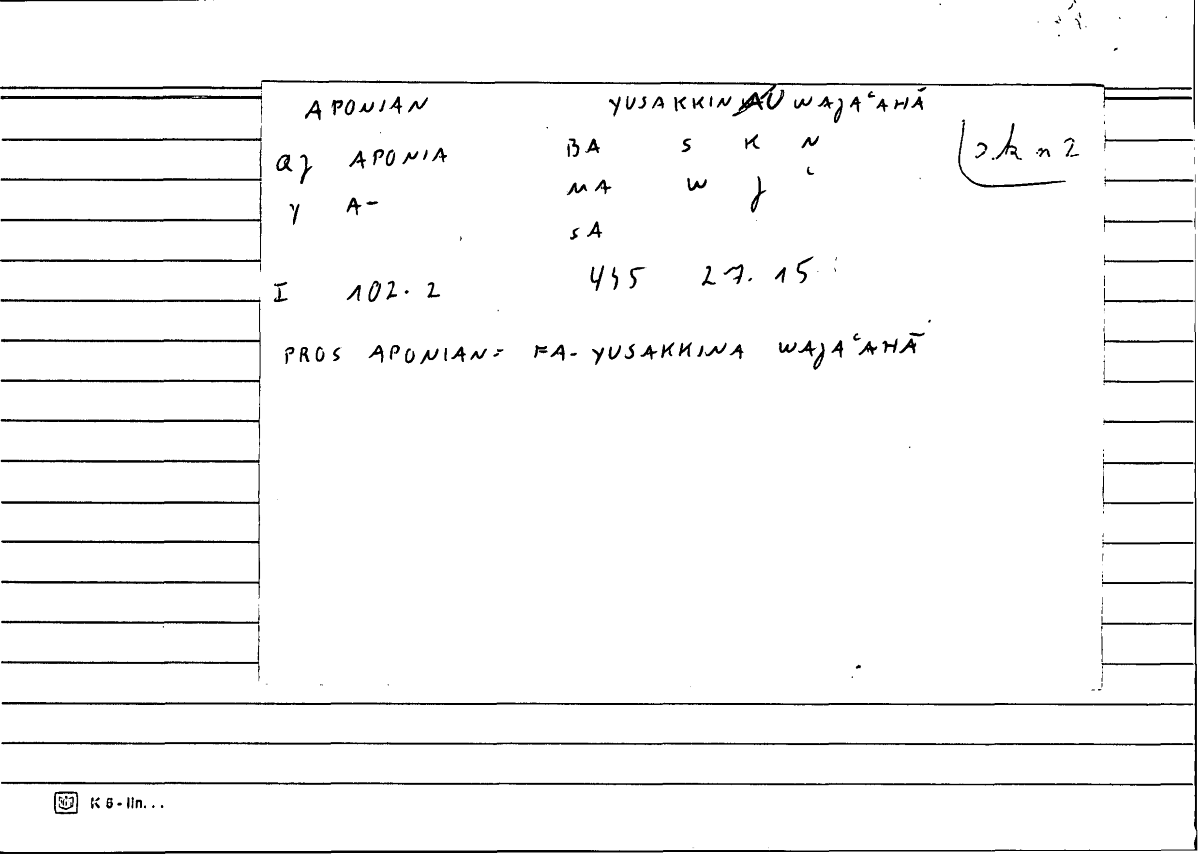 APONIAN YUSAKKIN WAJAʿAHĀ
aj APONIA BA S K N
s.k n 2
γ A- MA W J ʿ
SA
I 102. 2 455 27. 15
PROS APONIAN= FA- YUSAKKINA WAJAʿAHĀ
K 6 - lin...